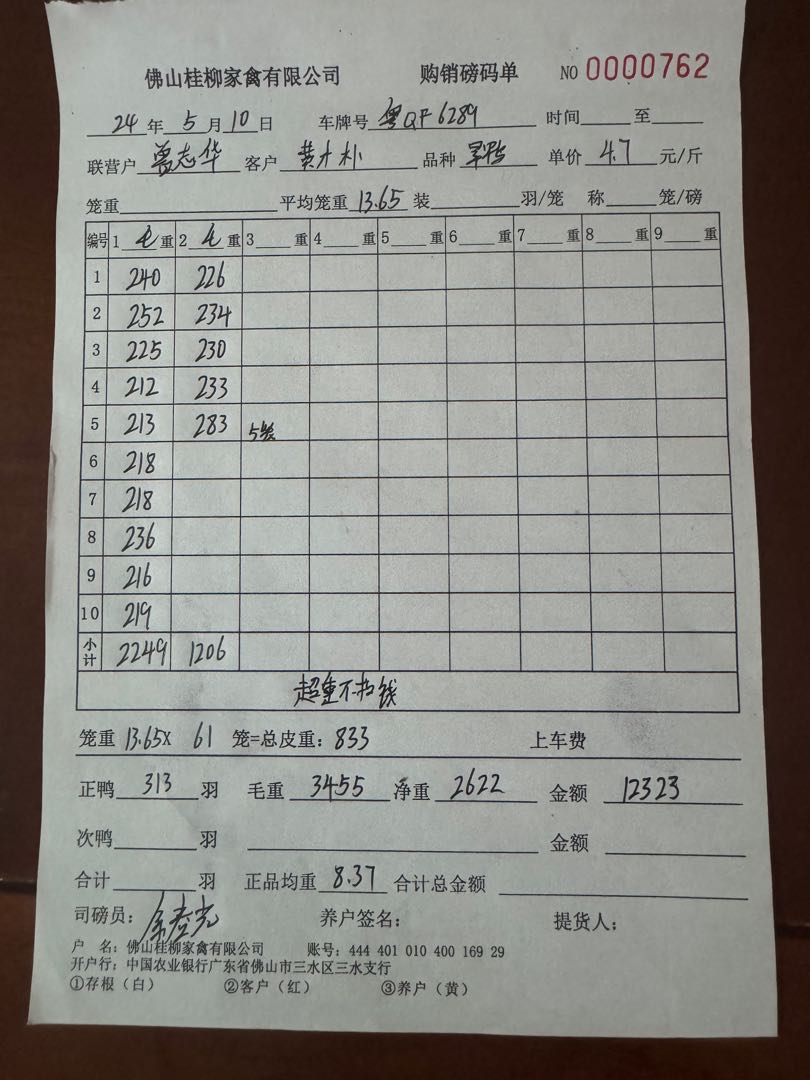 佛山桂柳家禽有限公司 购销磅码单 NO 0000762
24 年 5 月 10 日 车牌号 粤QF6289 时间 至
联营户 曾志华 客户 黄木朴 品种 单价 4.7 元/斤
笼重 平均笼重 13.65 装 羽/笼 称 笼/磅
编号 1 毛 重 2 毛 重 3 重 4 重 5 重 6 重 7 重 8 重 9 重
1 240 226
2 252 234
3 225 230
4 212 233
5 213 283 5笼
6 218
7 218
8 236
9 216
10 219
小计 2249 1206
超重不扣钱
笼重 13.65X 61 笼=总皮重: 833 上车费
正鸭 313 羽 毛重 3455 净重 2622 金额 12323
次鸭 羽 金额
合计 羽 正品均重 8.37 合计总金额
司磅员: 养户签名: 提货人:
户 名: 佛山桂柳家禽有限公司 账号: 444 401 010 400 169 29
开户行: 中国农业银行广东省佛山市三水区三水支行
①存根(白) ②客户(红) ③养户(黄)